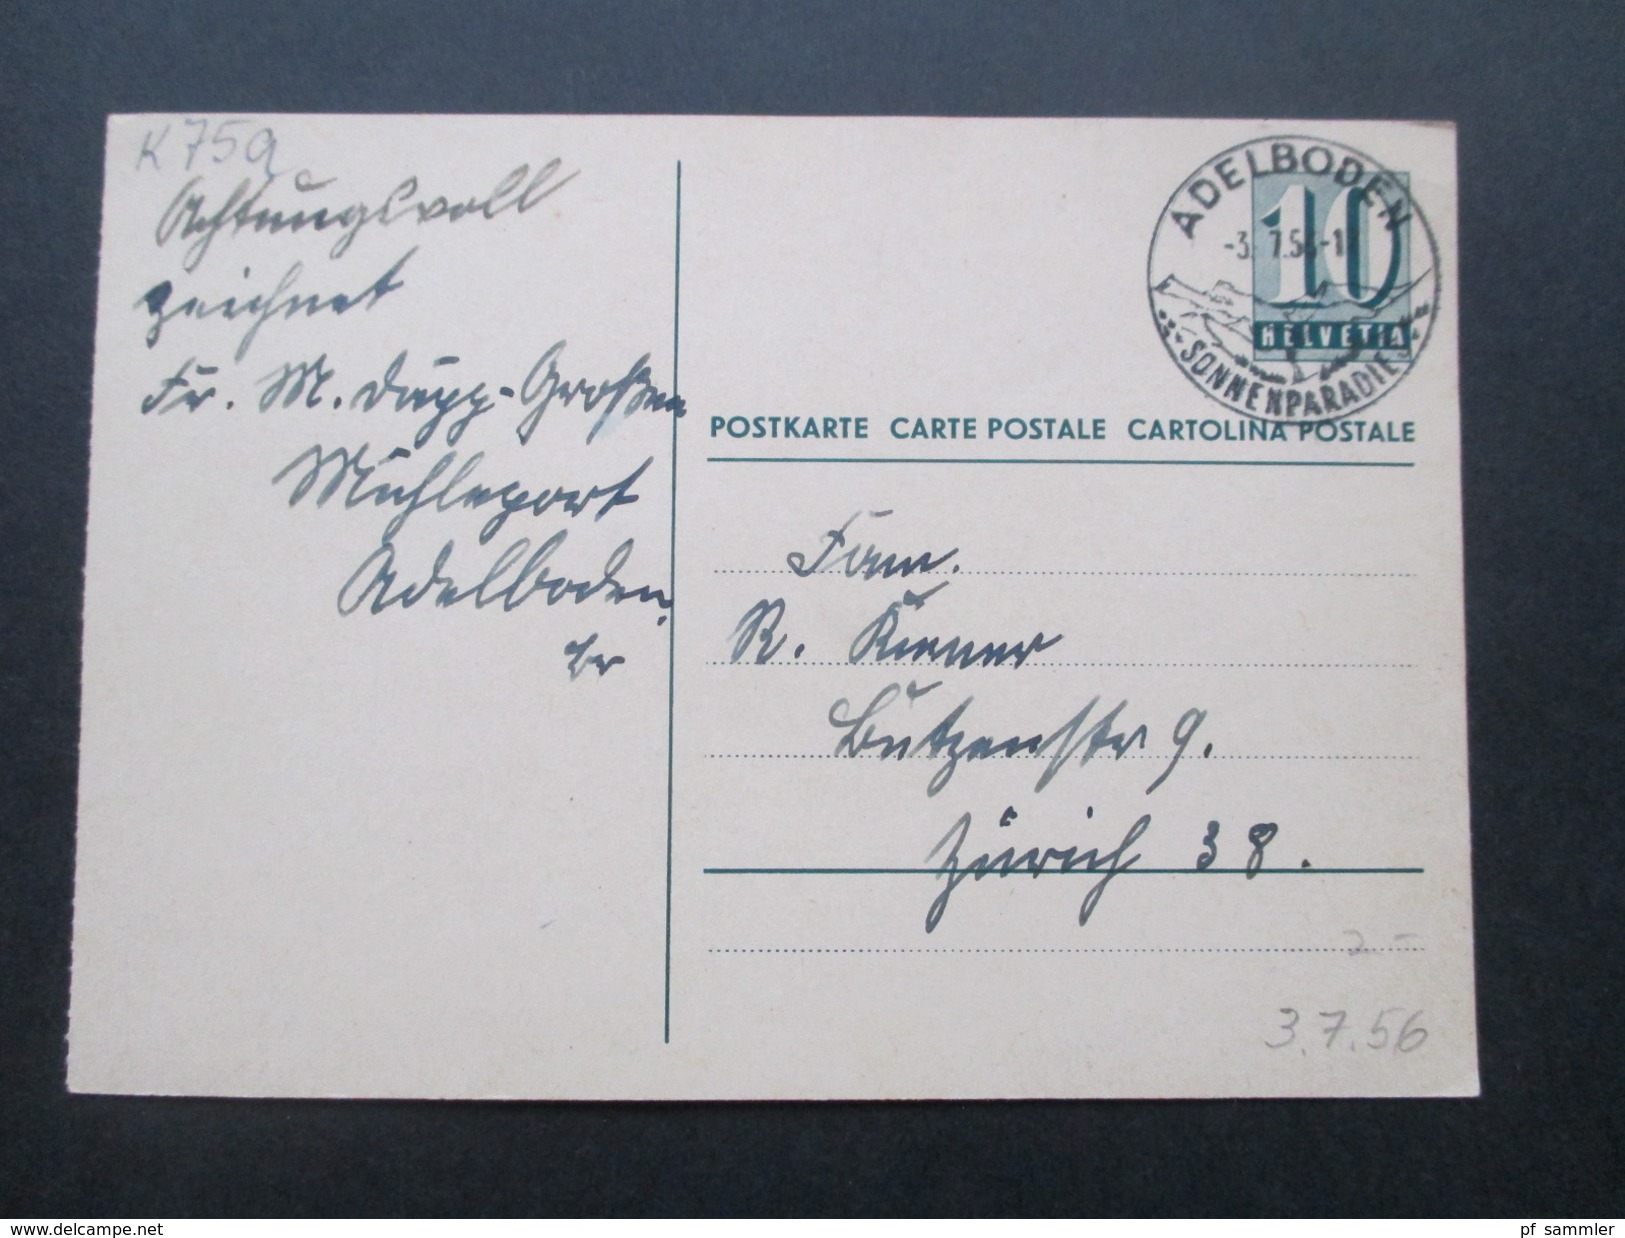 K 75a
Achtungsvoll
zeichnet
Fr. M. Dupp-Großen
Mühleport
Adelboden.
ADELBODEN
-3. 7.56-1
SONNENPARADIES
10
HELVETIA
POSTKARTE CARTE POSTALE CARTOLINA POSTALE
Fam.
R. Kiener
Butzenstr 9.
Zürich 38.
2.-
3.7.56
www.delcampe.net
pf_sammler